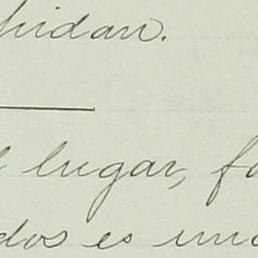 pidan.
l lugar, fa
dos es una